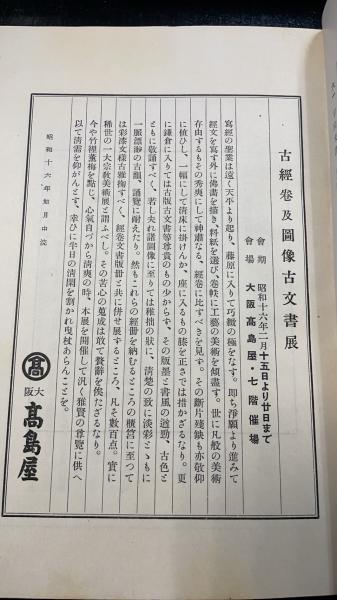 古經卷及圖像古文書展
會期　昭和十六年二月十五日より廿日まで
會場　大阪髙島屋・七階催場
寫經の聖業は遠く天平より起り、藤原に入りて巧緻の極をなす。即ち淨願より進みて
經文を寫す外に佛畫を描き、料紙を選び、卷軼に工藝の美術を傾盡す。世に凡般の美術
存由するもその秀爽にして神肅なる、經卷に比すべきを見ず。その斷片殘缺も亦敬仰
に値ひし、一幅にして清床に掛けんか、座に入るもの膝を正さでは措かざるなり。更
に鎌倉に入りては古版古文書等尊貴のもの少からず、その版墨と書風の遒勁、古色と
ともに敬誦すべく、若し夫れ諸圖像に至りては稚拙の狀に、清楚の致に淡彩とゝもに
一脈縹渺の古韻、謹覽に耐えたり。然もこれらの經册を納むるところの筐筥に至つて
は彩漆文樣古雅掬すべく、經卷文書版册と共に併せ展するところ、凡そ數百点。實に
稀世の一大宗教美術展と謂ふべし。その苦心の蒐成は敢て贅辭を俟たざるなり。
今や竹裡薫梅を點じ、心氣自づから清爽の時、本展を開催して汎く雅賢の尊覽に供へ
以て清霑を仰がんとす、幸ひに半日の清閑を割かれ曳杖あらんことを。
昭和十六年如月中浣
髙
大阪
髙島屋